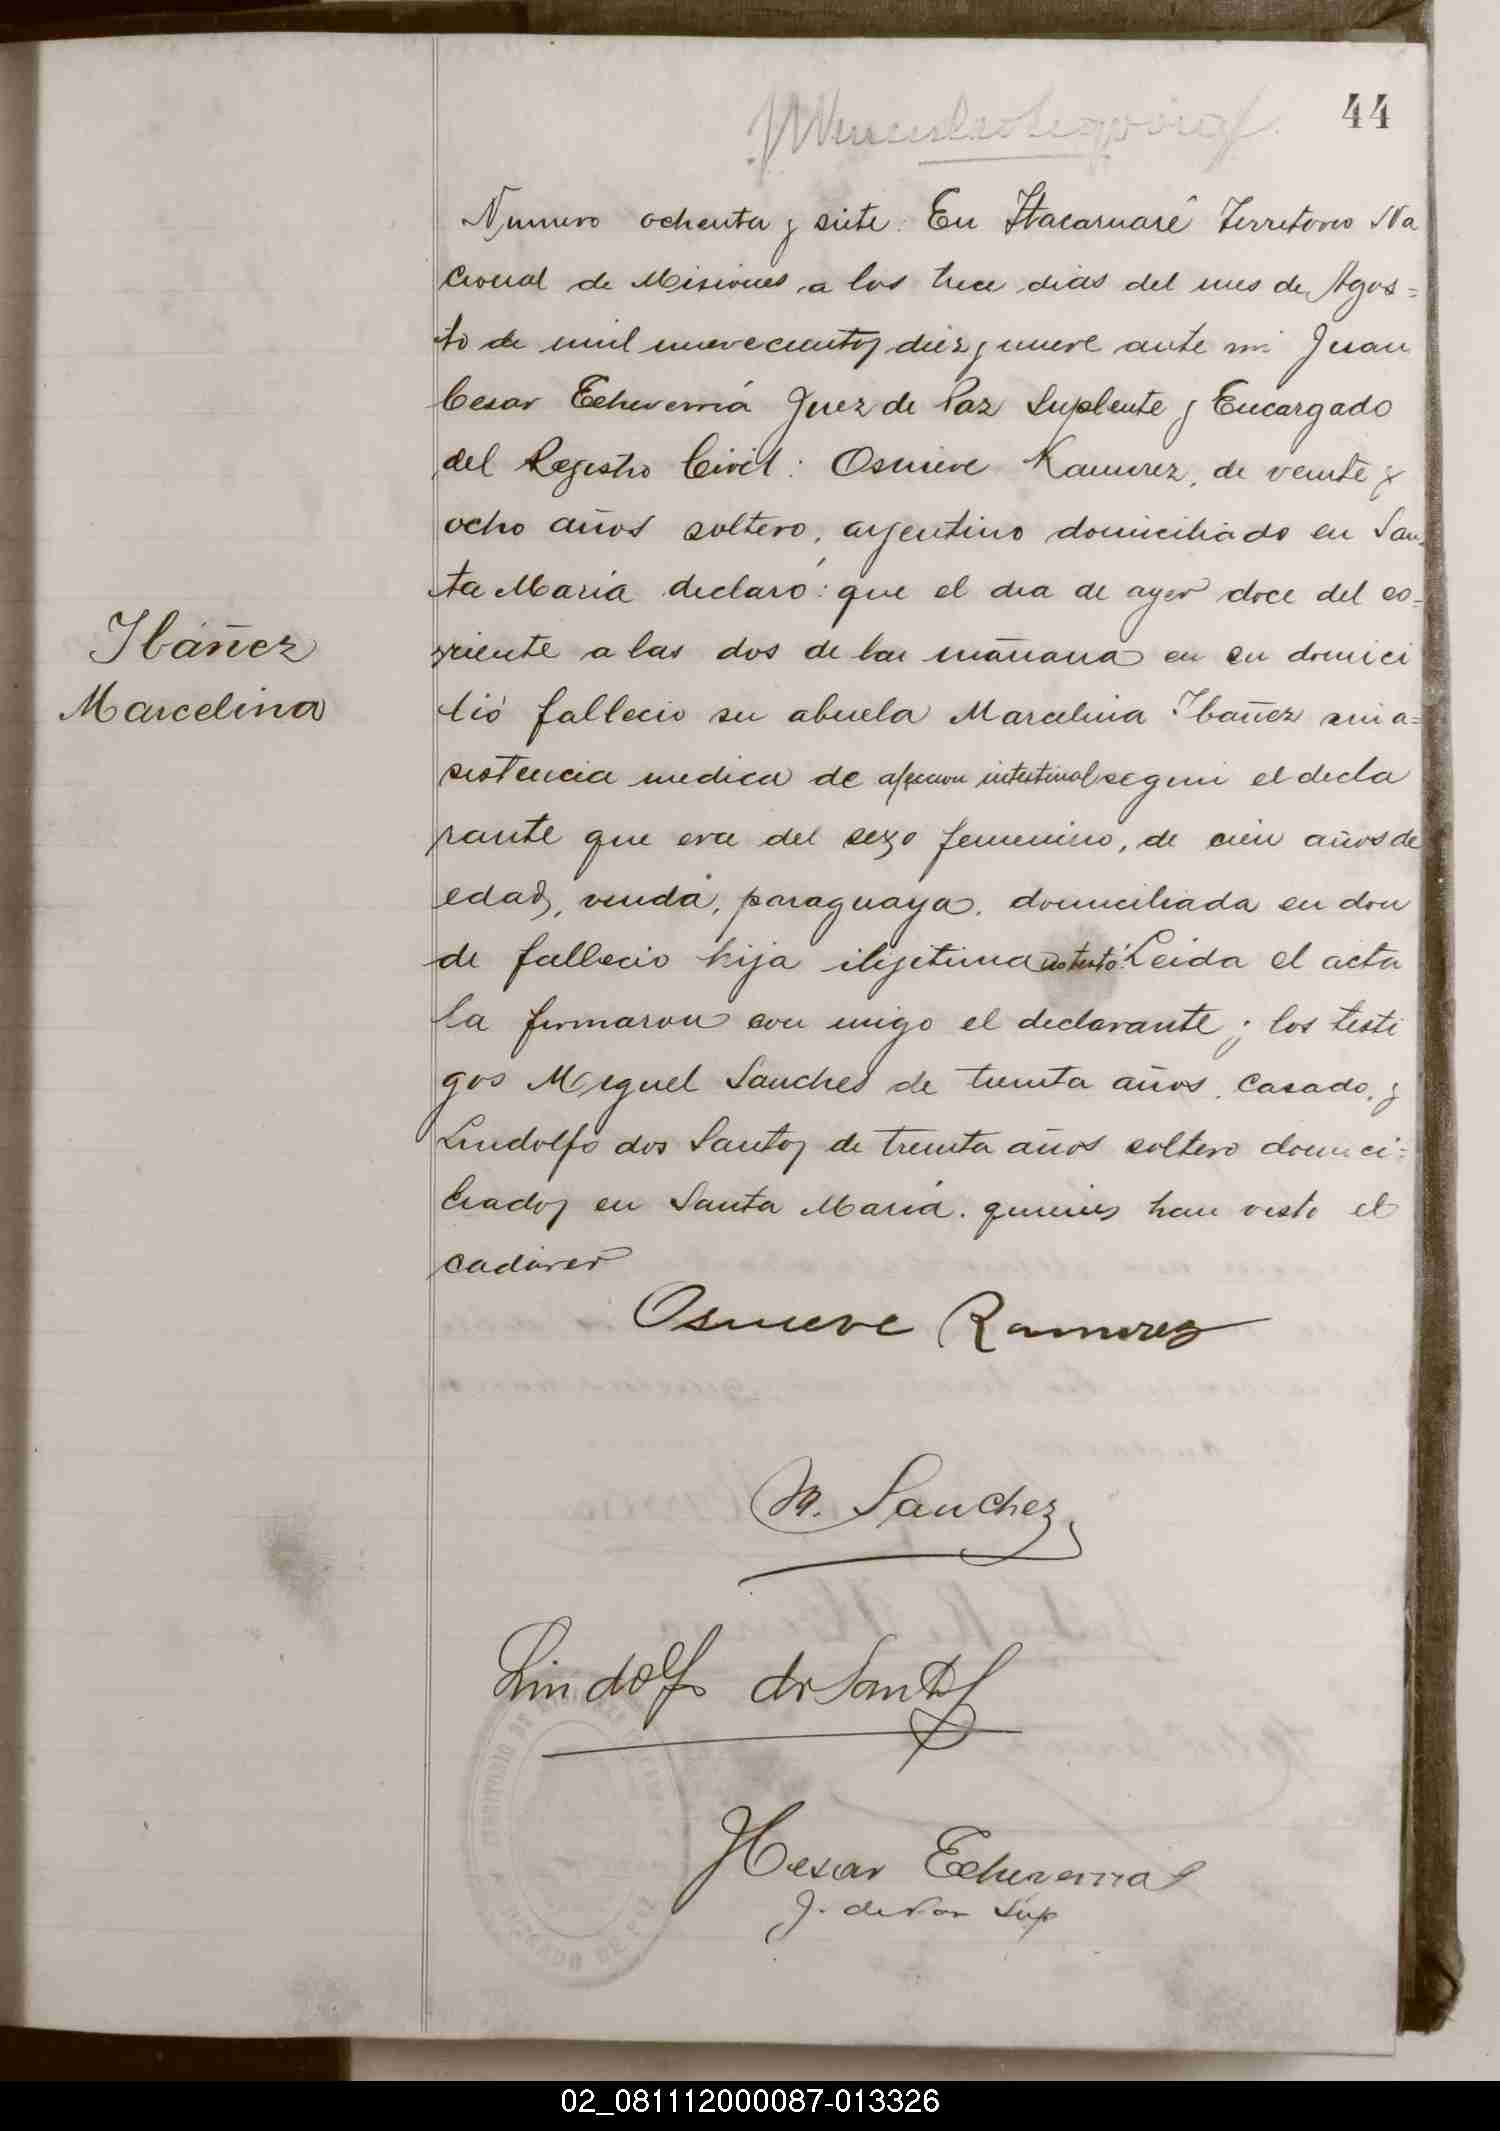 44
Numero ochenta y siete. En Itacaruaré Territorio Na
cional de Misiones, a los trece dias del mes de Agos=
to de mil nuevecientos diez y nueve ante mi Juan
Cesar Echeverriá Juez de Paz Suplente y Encargado
del Registro Civil: Osnieve Ramirez, de veinte y
ocho años soltero, argentino domiciliado en San
ta Maria declaró: que el dia de ayer doce del co=
rriente a las dos de la mañana en su domici
lio fallecio su abuela Marcelina Ibañez sin a=
sistencia medica de afeccion intestinal segun el decla
rante que era del sexo femenino, de cien años de
edad, viuda, paraguaya, domiciliada en don
de fallecio hija ilejitima no testó. Leida el acta
la firmaron con migo el declarante y los testi
gos Miguel Sanches de treinta años, casado, y
Lindolfo dos Santos de treinta años soltero domici=
liados en Santa Maria. quienes han visto el
cadáver
Ibáñez
Marcelina
Osnieve Ramirez
M. Sanchez
Lindolfo do Santos
JCesar Echeverria
J. de Paz Sup
02_081112000087-013326